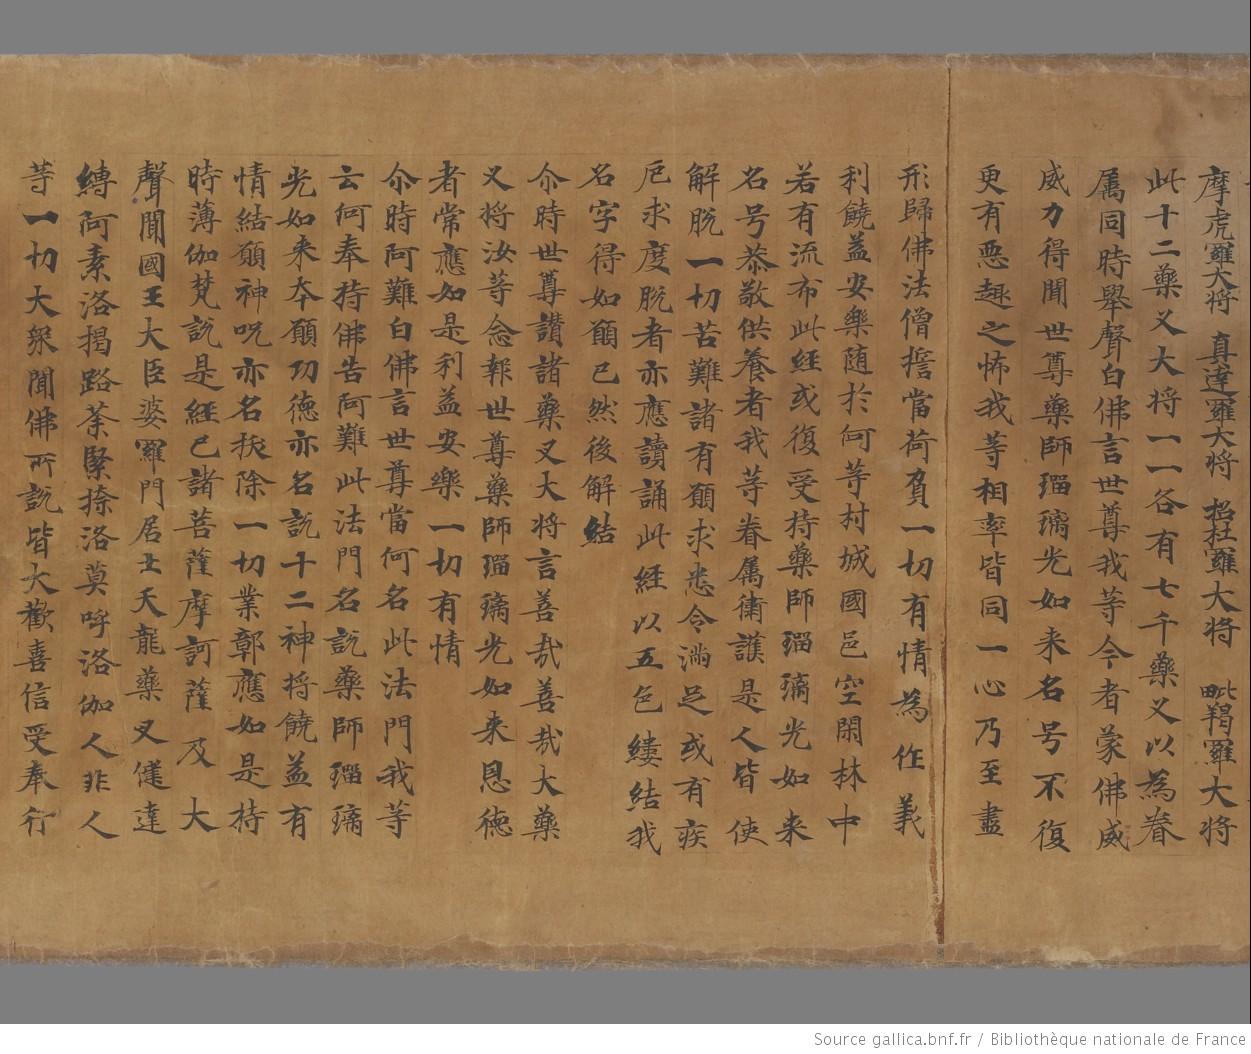 摩虎羅大将 真達羅大将 招杜羅大将 毗羯羅大将
此十二藥叉大将一一各有七千藥叉以為眷
属同時舉聲白佛言世尊我等今者蒙佛威
威力得聞世尊藥師瑠璃光如来名号不復
更有惡趣之怖我等相率皆同一心乃至盡
形歸佛法僧擔當荷負一切有情為作義
利饒益安樂随於何等村城國邑空閑林中
若有流布此經或復受持藥師瑠璃光如来
名号恭敬供養者我等眷属衛護是人皆使
解脱一切苦難諸有願求悉令滿足或有疾
厄求度脱者亦應讀誦此經以五色縷結我
名字得如願已然後解結
尒時世尊讃諸藥叉大将言善哉善哉大藥
叉将汝等念報世尊藥師瑠璃光如来恩徳
者常應如是利益安樂一切有情
尒時阿難白佛言世尊當何名此法門我等
云何奉持佛告阿難此法門名説藥師瑠璃
光如来夲願功徳亦名説十二神将饒益有
情結願神呪亦名拔除一切業鄣應如是持
時薄伽梵説是經已諸菩薩摩訶薩及大
聲聞國王大臣婆羅門居士天龍藥叉健達
縛阿素洛揭路荼緊捺洛莫呼洛伽人非人
等一切大衆聞佛所説皆大歡喜信受奉行
Source gallica.bnf.fr / Bibliothèque nationale de France